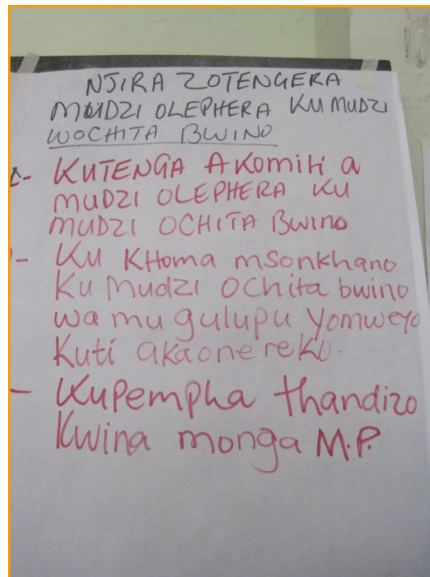 NJIRA ZOTENGERA
MUDZI OLEPHERA KU MUDZI
WOCHITA BWINO
- KUTENGA AKomiti a
MUDZI OLEPHERA KU
MUDZI OCHITA Bwino
- KU KHoma msonkhano
Ku Mudzi ochita bwino
wa mu gulupu yomweyo
Kuti akaonereko.
- Kupempha thandizo
Kwina monga M.P.